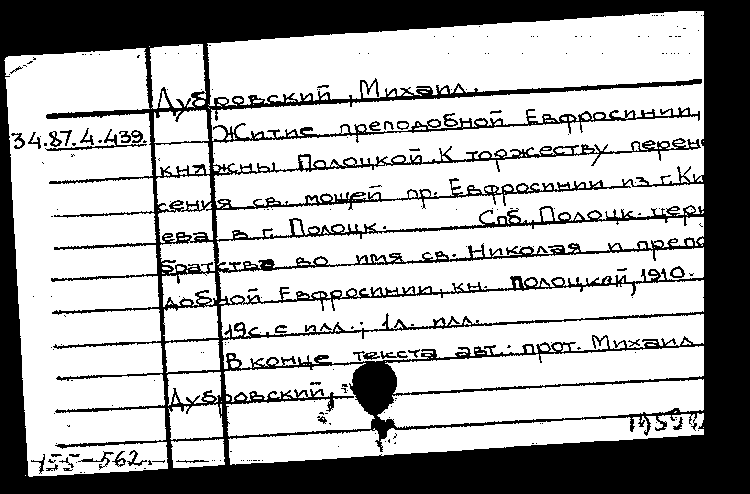 Дубровский, Михаил.
34.87.4.439. Житие преподобной Евфросинии,
княжны Полоцкой. К торжеству перене
сения св. мощей пр. Евфросинии из г. Ки
ева в г. Полоцк. Спб., Полоцк. церк
братство во имя св. Николая и препо
добной Евфросинии, кн. Полоцкой, 1910.
19 с. с илл.; 1 л. илл.
В конце текста авт.: прот. Михаил
Дубровский.
155-562.